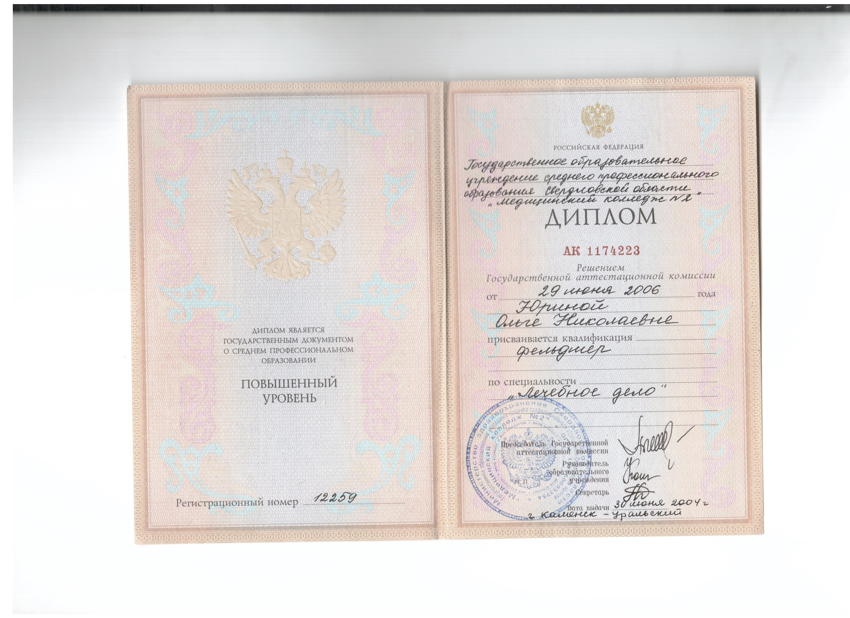 ДИПЛОМ ЯВЛЯЕТСЯ
ГОСУДАРСТВЕННЫМ ДОКУМЕНТОМ
О СРЕДНЕМ ПРОФЕССИОНАЛЬНОМ
ОБРАЗОВАНИИ
ПОВЫШЕННЫЙ
УРОВЕНЬ
Регистрационный номер 12259
РОССИЙСКАЯ ФЕДЕРАЦИЯ
Государственное образовательное
учреждение среднего профессионального
образования Свердловской области
"Медицинский колледж №2"
ДИПЛОМ
АК 1174223
Решением
Государственной аттестационной комиссии
от 29 июня 2006 года
Юриной
Ольге Николаевне
присваивается квалификация
фельдшер
по специальности
"Лечебное дело"
Председатель Государственной
аттестационной комиссии
Руководитель
образовательного
учреждения
Секретарь
Дата выдачи 30 июня 2004 г
г. Каменск-Уральский